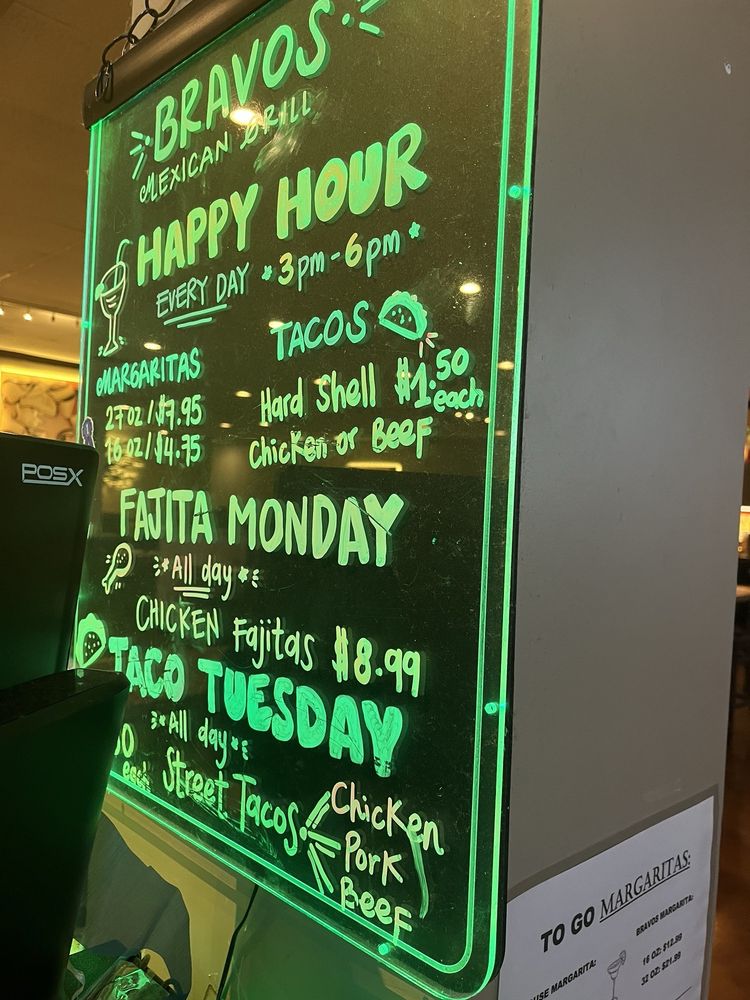 BRAVOS
MEXICAN GRILL
HAPPY HOUR
EVERY DAY * 3pm - 6pm *
MARGARITAS
27 oz / $7.95
16 oz / $4.75
TACOS
Hard Shell $1.50 each
Chicken or Beef
POSX
FAJITA MONDAY
All day
CHICKEN Fajitas $8.99
TACO TUESDAY
All day
Street Tacos
Chicken
Pork
Beef
TO GO MARGARITAS:
BRAVOS MARGARITA:
16 OZ: $12.99
32 OZ: $21.99
MARGARITA: